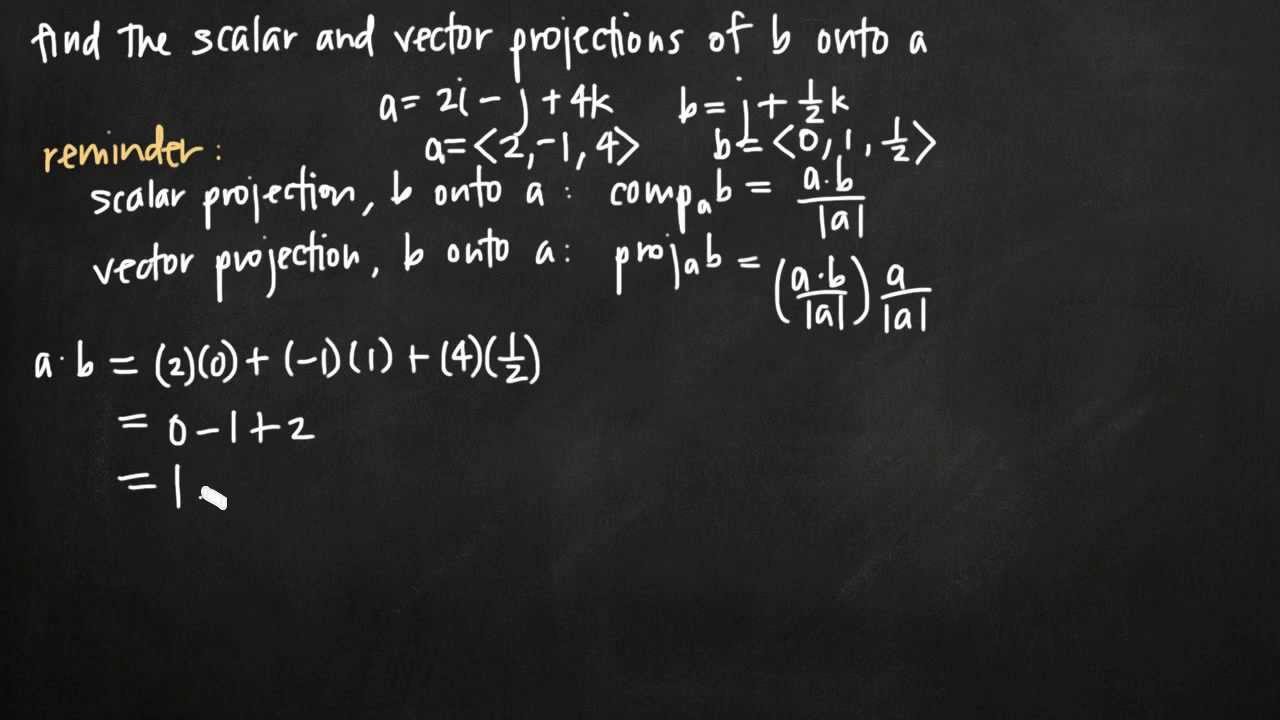 find the scalar and vector projections of b onto a
a= 2i - j + 4k b= j + ½k
a=<2,-1,4> b=<0,1,½>
reminder:
scalar projection, b onto a: compₐb = a·b/|a|
vector projection, b onto a: projₐb = (a·b/|a|) a/|a|
a·b = (2)(0) + (-1)(1) + (4)(½)
= 0 - 1 + 2
= 1